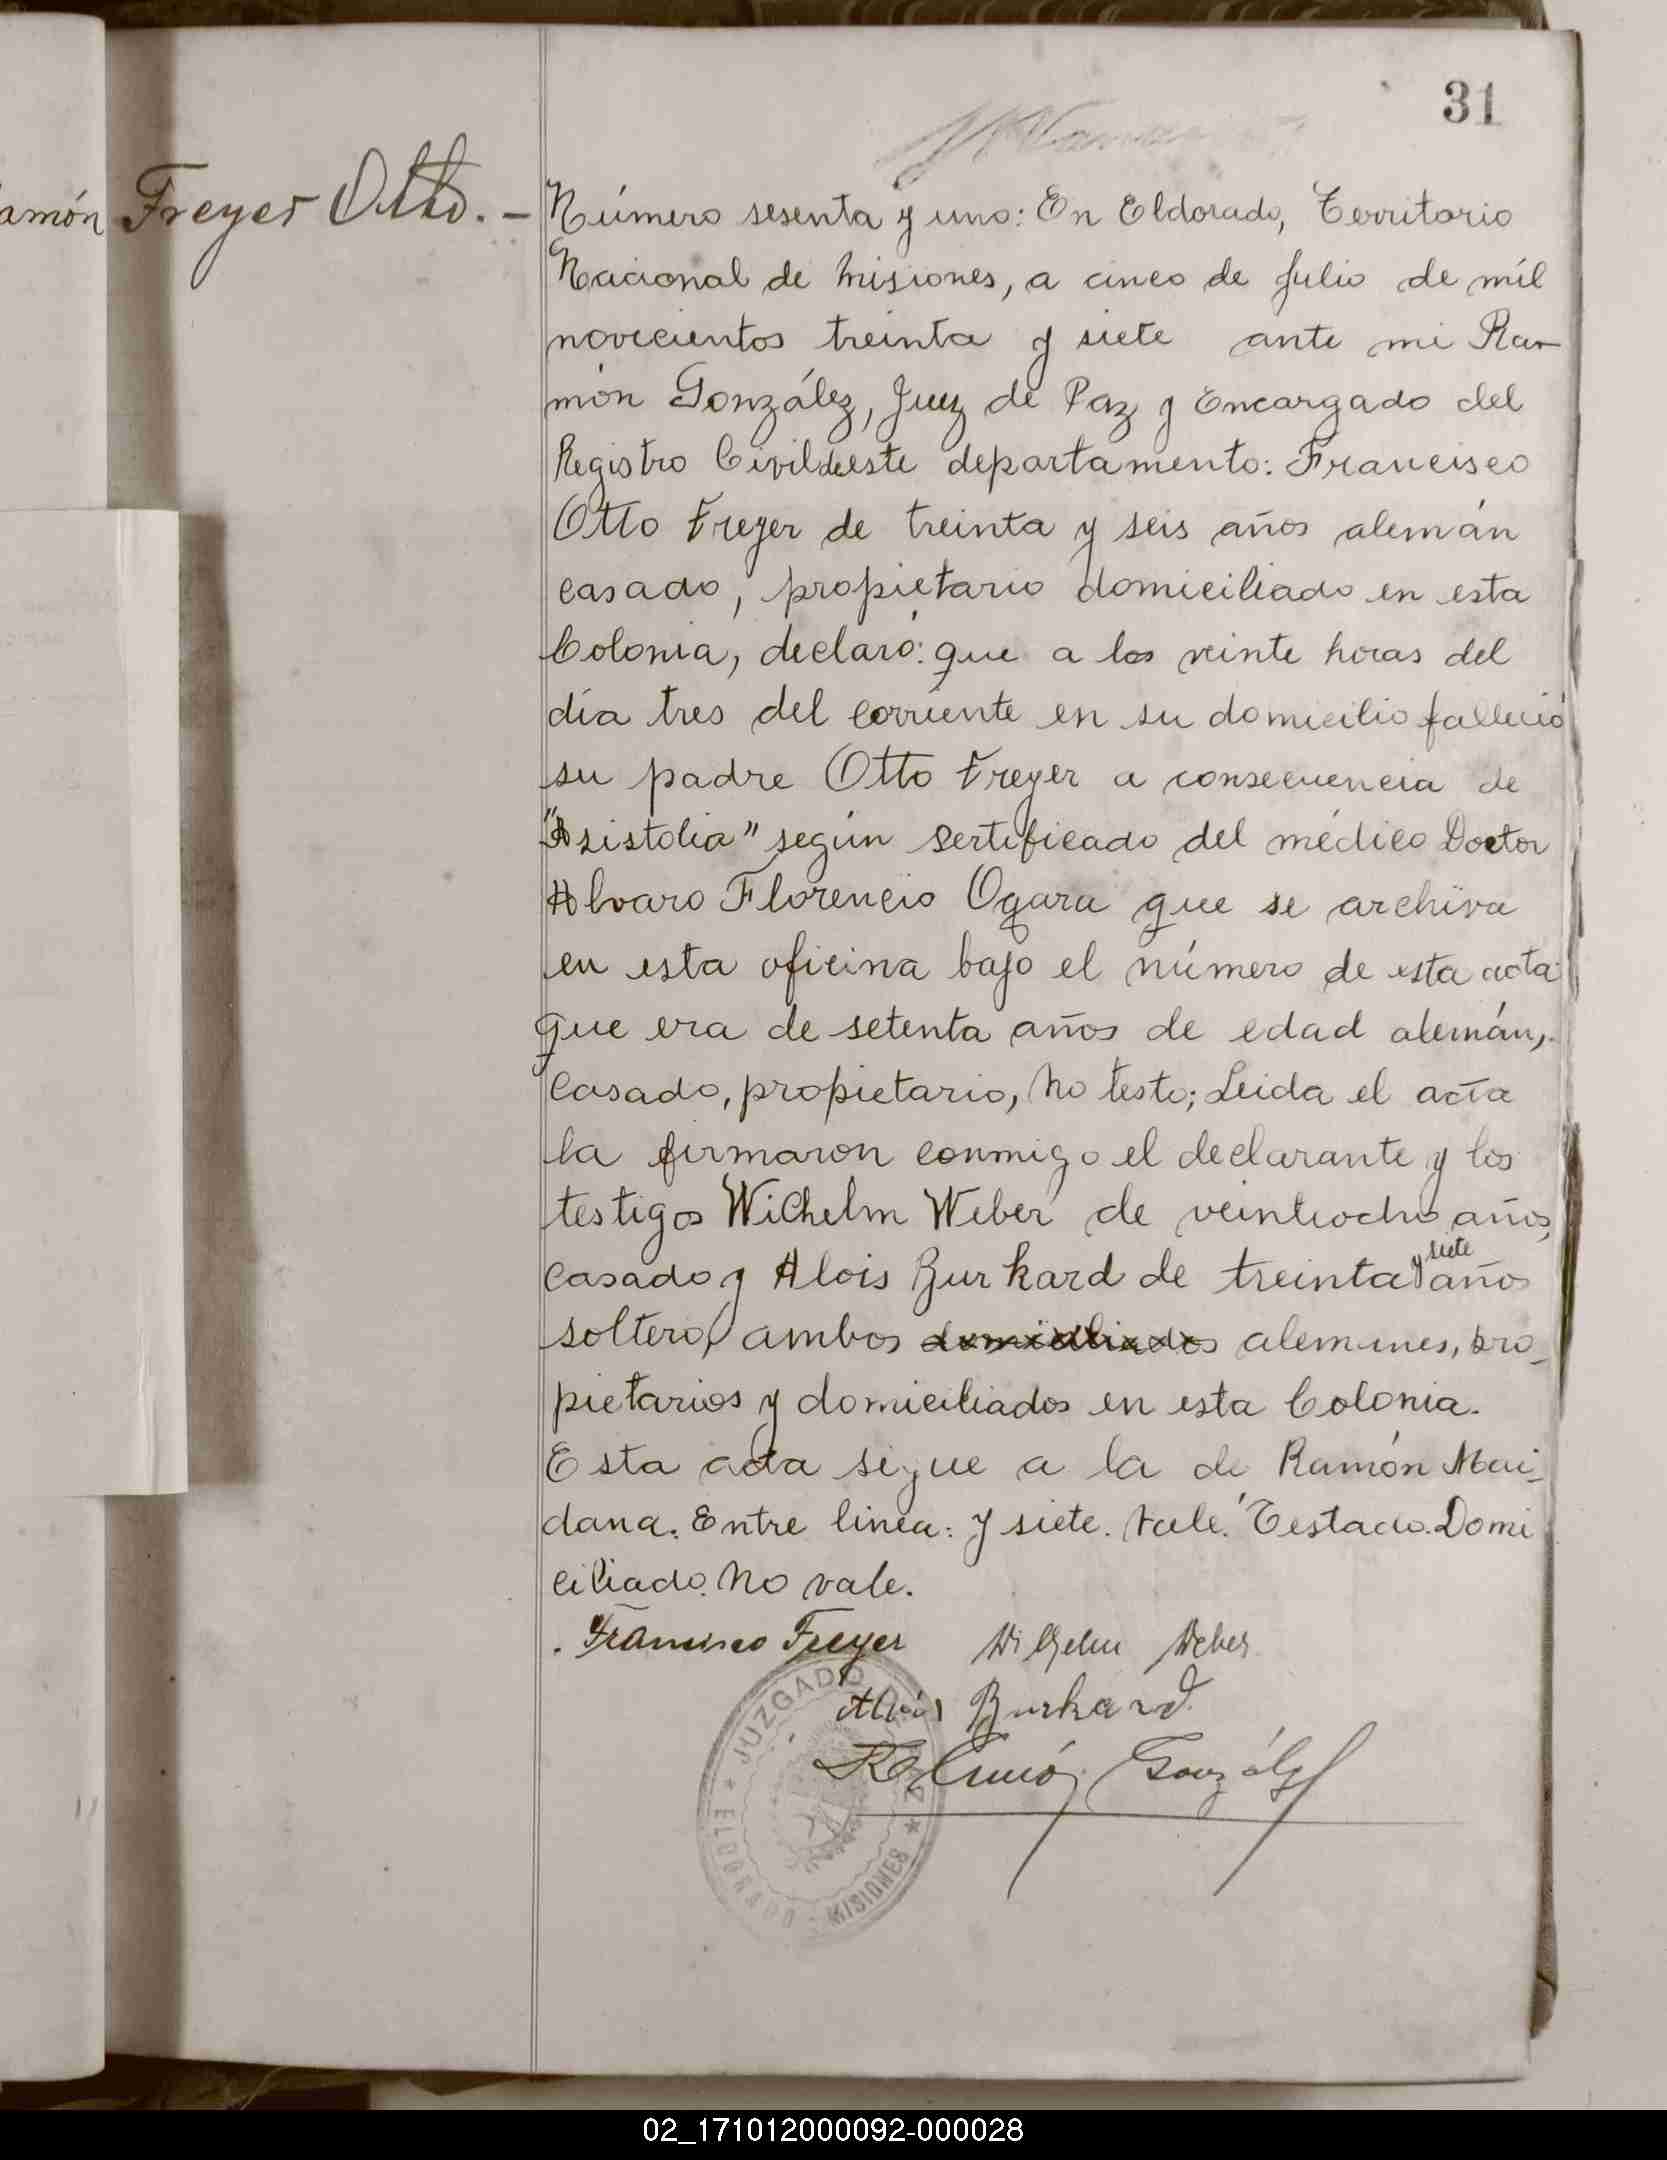 31
amón
Freyer Otto. —
Número sesenta y uno: En Eldorado, Territorio
Nacional de Misiones, a cinco de Julio de mil
novecientos treinta y siete ante mi Ra-
món González, Juez de Paz y Encargado del
Registro Civil de este departamento: Francisco
Otto Freyer de treinta y seis años alemán
casado, propietario domiciliado en esta
Colonia, declaró: que a las veinte horas del
día tres del corriente en su domicilio falleció
su padre Otto Freyer a consecuencia de
"Asistolia" según sertificado del médico Doctor
Alvaro Florencio Ogara que se archiva
en esta oficina bajo el número de esta acta
que era de setenta años de edad alemán,
casado, propietario, no testo; Leida el acta
la firmaron conmigo el declarante y los
testigos Wilhelm Weber de veintiocho años,
casado y Alois Burkard de treinta y siete años
soltero, ambos domiciliados alemanes, pro-
pietarios y domiciliados en esta Colonia.
Esta acta sigue a la de Ramón Mai-
dana. Entre linea: y siete. Vale. Testado. Domi
ciliado. No vale.
Francisco Freyer Wilhelm Weber
Alois Burkard
Ramón González
JUZGADO DE PAZ * MISIONES - ELDORADO *
02_171012000092-000028